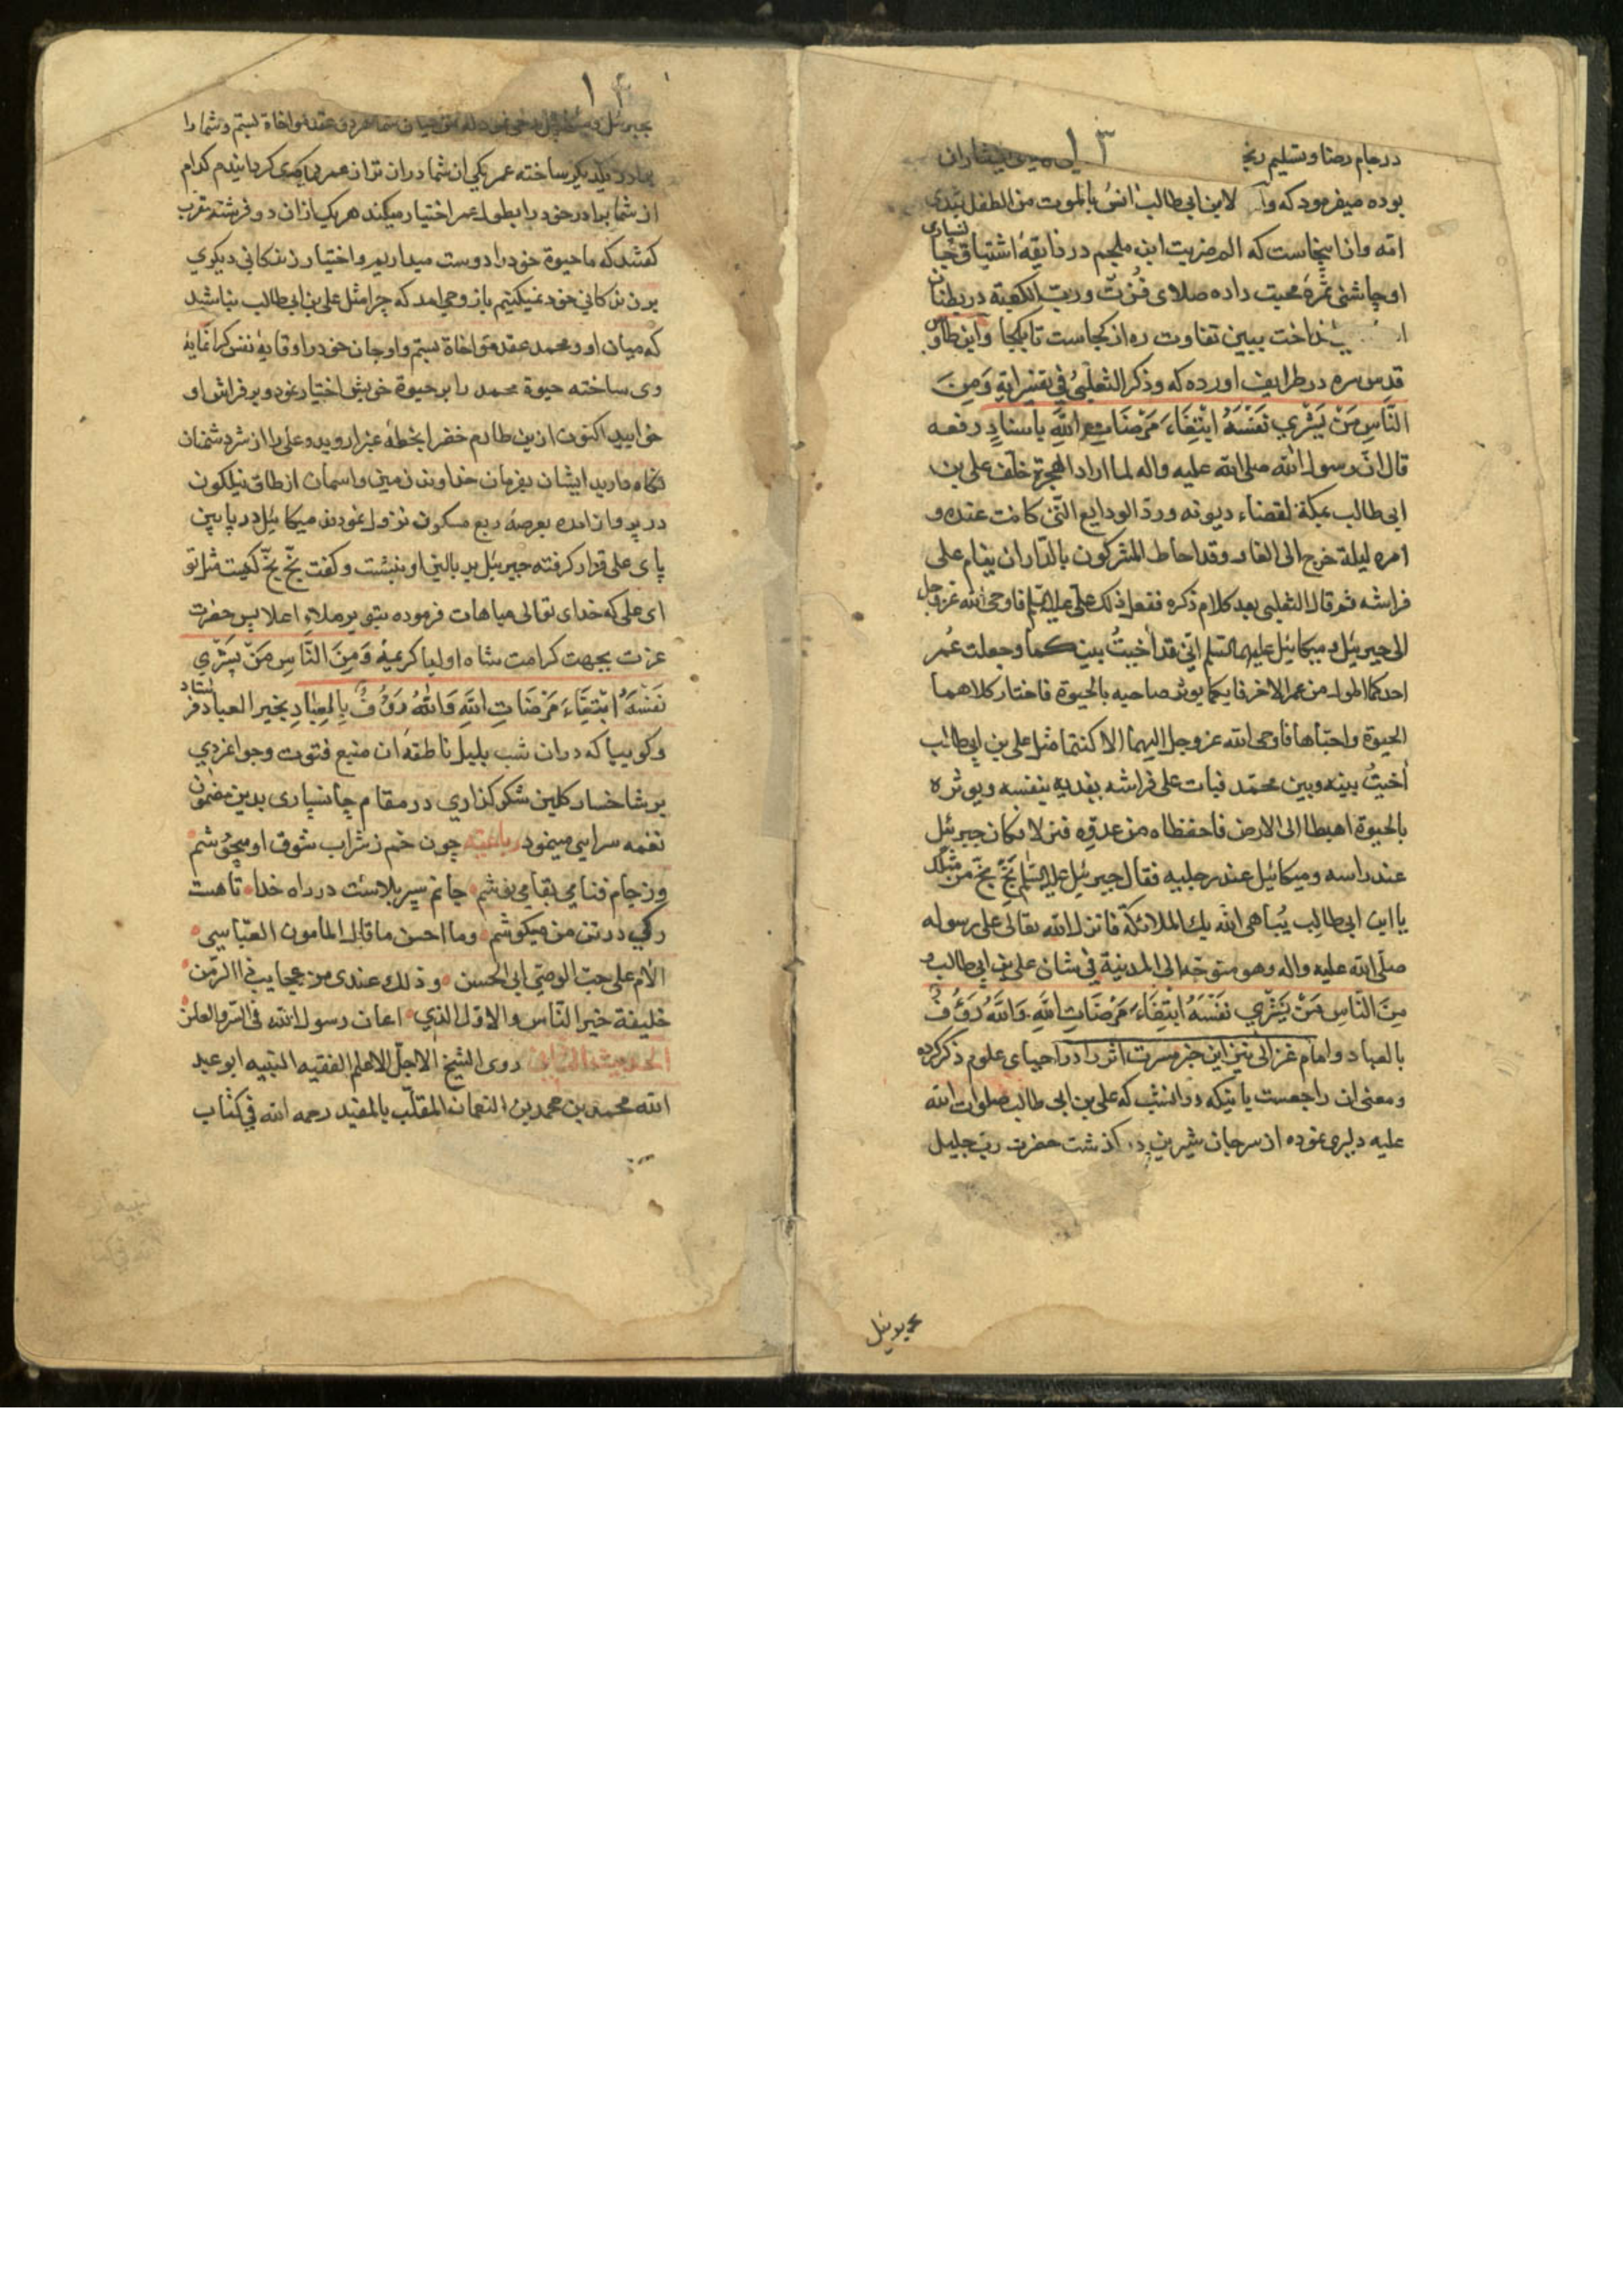 ١٣
در جام رضا و تسلیم
بوده میفرمود که لابن ابی طالب انس بالموت من الطفل بثدی
امّه و از اینجاست که الم ضربت ابن ملجم در ذایقهٔ اشتیاق جانسپاری
او چاشنی ثمرهٔ محبت داده صلای فُزتُ وربّ الکعبة در
ببین تفاوت ره از کجاست تا بکجا و ابن طاوس
قدس سره در طرایف اورده که وذکر الثعلبیُ فی تفسیر ایة وَمِنَ
النَّاسِ مَنْ یَشْرِی نَفْسَهُ ابْتِغَاءَ مَرْضَاتِ اللَّهِ باسنادٍ رفعه
قال انّ رسول الله صلی الله علیه واله لما اراد الهجرة خلّف علی بن
ابی طالب بمکة لقضاء دیونه وردّ الودایع الّتی کانت عنده و
امره لیلة خرج الی الغار وقد احاط المشرکون بالدّار ان ینام علی
فراشه ثم قال الثعلبی بعد کلام ذکره ففعل ذلک علیّ علیه السّلم فاوحی الله عزوجل
الی جبرئیل و میکائیل علیهما السّلم انّی قد اٰخیتُ بینکما وجعلت عُمر
احدکما اطول من عمر الاخر فایّکما یوثر صاحبه بالحیوة فاختار کلاهما
الحیوة واحبّاها فاوحی الله عزوجل الیهما الا کنتما مثل علی بن ابی طالب
اٰخیتُ بینه وبین محمّد فبات علی فراشه یفدیه بنفسه ویوثره
بالحیوة اهبطا الی الارض فاحفظاه من عدوّه فنزلا فکان جبرئیل
عند راسه ومیکائیل عند رجلیه فقال جبرئیل علیه السّلم بَخّ بَخّ من مثلک
یا ابن ابی طالب یُباهی الله بك الملائکة فانزل الله تعالی علی رسوله
صلّی الله علیه واله وهو متوجّه الی المدینة فی شان علی بن ابی طالب و
مِنَ النَّاسِ مَنْ یَشْرِی نَفْسَهُ ابْتِغَاءَ مَرْضَاتِ اللَّهِ وَاللَّهُ رَؤُفٌ
بالعباد و امام غزالی نیز این خبر مسرت اثر را در احیای علوم ذکر کرده
ومعنی ان راجعست باینکه در انشب که علی بن ابی طالب صلوات الله
علیه دلیری نموده از سر جان شیرین در گذشت حضرت رب جلیل
بجبرئیل
١٤
بجبرئیل و میکائیل وحی نمود که من میان شما هردو عقد مواخاة بستم و شما را
برادر یکدیگر ساخته عمر یکی از شما دراز تر از عمر دیگری کردانیدم کدام
از شما برادر خود را بطول عمر اختیار میکند هریک ازان دو فرشتهٔ مقرب
کفتند که ما حیوة خود را دوست میداریم و اختیار زندکانی دیکری
بر زندکانی خود نمیکنیم باز وحی امد که چرا مثل علی بن ابی طالب نباشید
که میان او و محمد عقد مواخاة بستم و او جان خود را وقایهٔ نفس کرانمایهٔ
وی ساخته حیوة محمد را بر حیوة خویش اختیار نمود و بر فراش او
خوابید اکنون ازین طارم خضرا بخطهٔ غبرا روید و علی را از شر دشمنان
نکاه دارید ایشان بفرمان خداوند زمین و اسمان از طاق نیلکون
در پرواز امده بعرصهٔ ربع مسکون نزول نمودند میکائیل در پایین
پای علی قرار کرفته جبرئیل بر بالین او بنشست و کفت بَخّ بَخّ کیست مثل تو
ای علی که خدای تعالی مباهات فرموده بتو بر ملاءِ اعلا پس حضرت
عزت بجهت کرامت شاه اولیا کریمهٔ وَمِنَ النَّاسِ مَنْ یَشْرِی
نَفْسَهُ ابْتِغَاءَ مَرْضَاتِ اللَّهِ وَاللَّهُ رَؤُفٌ بِالْعِبَادِ بخیر العباد فرستاد
وکوییا که دران شب بلبل ناطقهٔ ان منبع فتوت و جوانمردی
بر شاخسار کلبن شکر کذاری در مقام جانسپاری بدین مضمون
نغمه سرایی مینمود رباعیه چون خم ز شراب شوق او میجوشم
وز جام فنا می بقا می نوشم جانم سپر بلاست در راه خدا تا هست
رکی در تن من میکوشم وما احسن ما قال المامون العبّاسی
الام علی حبّ الوصیّ ابی الحسن وذلك عندی من عجایب ذا الزّمن
خلیفة خیر النّاس والاوّل الذی اعان رسول الله فی السّر والعلن
روی الشیخ الاجلّ الاعلم الفقیه النبیه ابو عبد
الله محمد بن محمد بن النعمان الملقّب بالمفید رحمه الله فی کتاب